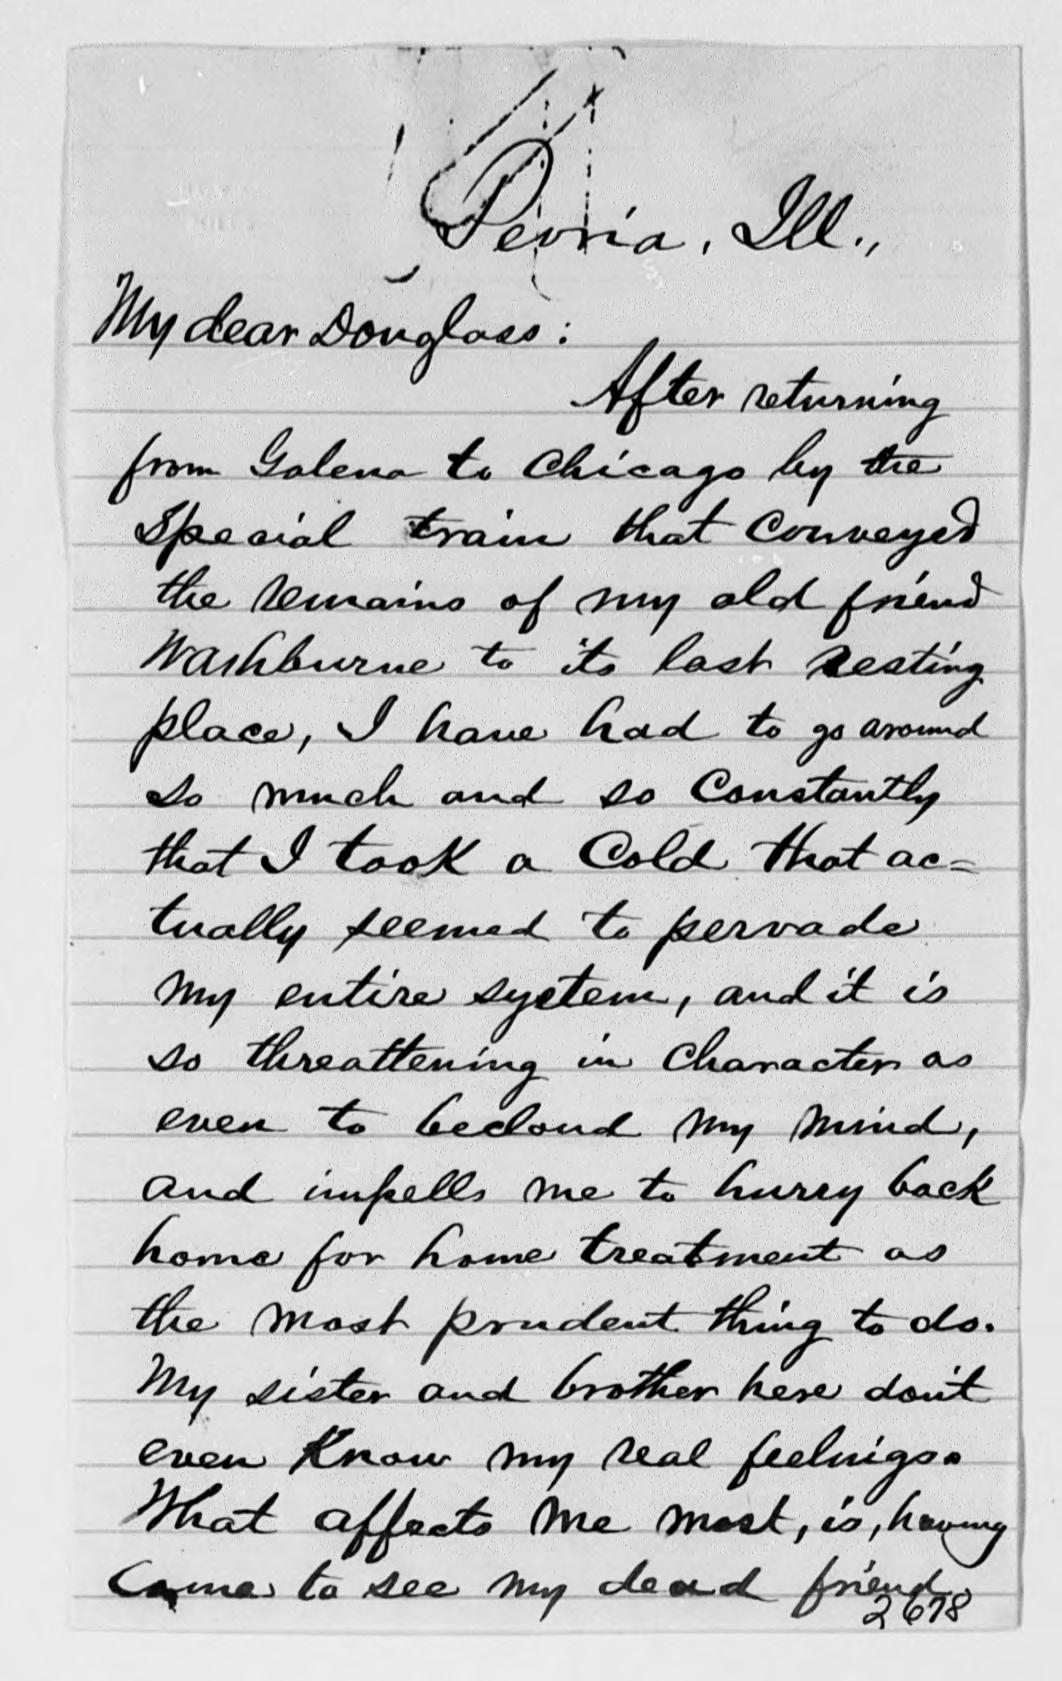 Peoria, Ill.,
My dear Douglass:
After returning
from Galena to Chicago by the
special train that conveyed
the remains of my old friend
Washburne to its last resting
place, I have had to go around
so much and so constantly
that I took a Cold that ac=
tually seemed to pervade
my entire system, and it is
so threattening in character as
even to becloud my mind,
and impells me to hurry back
home for home treatment as
the most prudent thing to do.
My sister and brother here don't
even know my real feelings.
What affects me most, is, having
Came to see my dead friend
2678